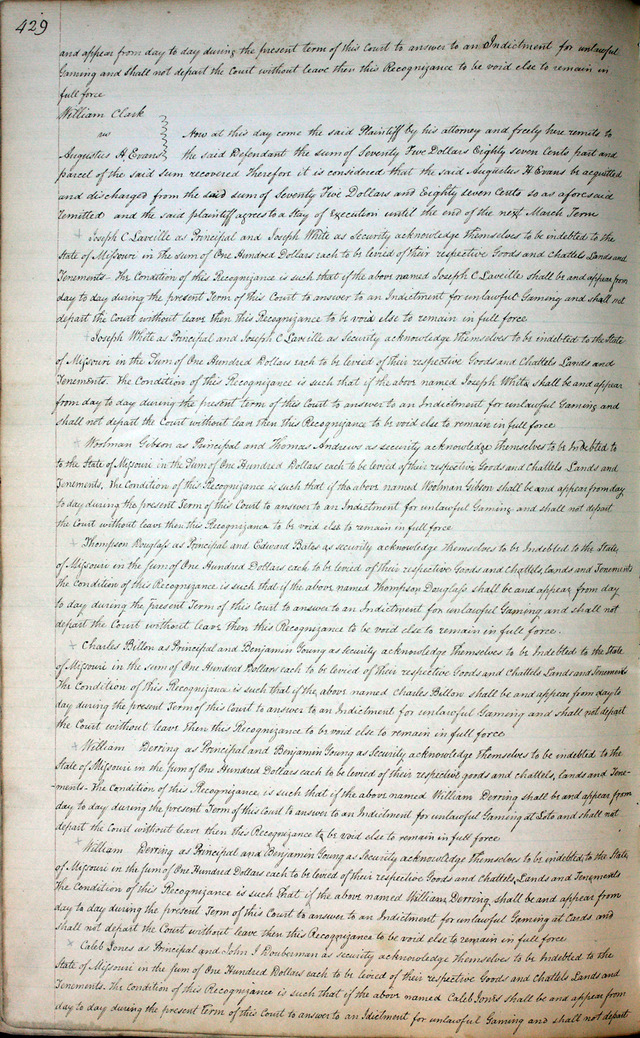 429
and appear from day to day during the present term of this Court to answer to an Indictment for unlawful
Gaming and shall not depart the Court without leave then this Recognizance to be void else to remain in
full force
William Clark
vs
Now at this day come the said Plaintiff by his attorney and freely here remits to
Augustus H Evans the said Defendant the sum of Seventy Five Dollars Eighty seven Cents part and
parcel of the said sum recovered Therefore it is considered that the said Augustus H Evans be acquitted
and discharged from the said sum of Seventy Five Dollars and Eighty seven Cents so as aforesaid
remitted and the said plaintiff agrees to a stay of Execution until the end of the next March Term
+ Joseph C Laveille as Principal and Joseph White as Security acknowledge themselves to be indebted to the
State of Missouri in the sum of One Hundred Dollars each to be levied of their respective Goods and Chattels Lands and
Tenements - The Condition of this Recognizance is such that if the above named Joseph C Laveille shall be and appear from
day to day during the present Term of this Court to answer to an Indictment for unlawful Gaming and shall not
depart the Court without leave then this Recognizance to be void else to remain in full force
Joseph White as Principal and Joseph C Laveille as Security acknowledge themselves to be indebted to the State
of Missouri in the Sum of One Hundred Dollars each to be levied of their respective Goods and Chattels Lands and
Tenements. The Condition of this Recognizance is such that if the above named Joseph White shall be and appear
from day to day during the present term of this Court to answer to an Indictment for unlawful Gaming and
shall not depart the Court without leave then this Recognizance to be void else to remain in full force
+ Woolman Gibson as Principal and Thomas Andrews as security acknowledge themselves to be Indebted to
to the State of Missouri in the Sum of One Hundred Dollars each to be levied of their respective Goods and Chattels Lands and
Tenements, The Condition of this Recognizance is such that if the above named Woolman Gibson shall be and appear from day
to day during the present Term of this Court to answer to an Indictment for unlawful Gaming and shall not depart
the Court without leave then this Recognizance to be void else to remain in full force
+ Thompson Douglass as Principal and Edward Bates as security acknowledge themselves to be Indebted to the State
of Missouri in the sum of One Hundred Dollars each to be levied of their respective Goods and Chattels, Lands and Tenements
the Condition of this Recognizance is such that if the above named Thompson Douglass shall be and appear from day
to day during the present Term of this Court to answer to an Indictment for unlawful Gaming and shall not
depart the Court without leave then this Recognizance to be void else to remain in full force.
+ Charles Billon as Principal and Benjamin Young as security acknowledge Themselves to be Indebted to the State
of Missouri in the sum of One Hundred Dollars each to be levied of their respective Goods and Chattels Lands and Tenements
The Condition of this Recognizance is such that if the above named Charles Billon shall be and appear from day to
day during the present Term of this Court to answer to an Indictment for unlawful Gaming and shall not depart
the Court without leave then this Recognizance to be void else to remain in full force
+ William Derring as Principal and Benjamin Young as Security acknowledge Themselves to be indebted to the
State of Missouri in the sum of One Hundred Dollars each to be levied of their respective goods and chattels, Lands and Tene-
-ments. The Condition of this Recognizance is such that if the above named William Derring shall be and appear from
day to day during the present Term of this Court to answer to an Indictment for unlawful Gaming at Loto and shall not
depart the Court without leave then this Recognizance to be void else to remain in full force
+ William Derring as Principal and Benjamin Young as Security acknowledge themselves to be indebted to the State
of Missouri in the sum of One Hundred Dollars each to be levied of their respective Goods and Chattels, Lands and Tenements
The Condition of this Recognizance is such that if the above named William Derring shall be and appear from
day to day during the present Term of this Court to answer to an Indictment for unlawful Gaming at Cards and
shall not depart the Court without leave then this Recognizance to be void else to remain in full force
+ Caleb Jones as Principal and John J Douberman as security acknowledge Themselves to be Indebted to the
State of Missouri in the sum of One Hundred Dollars each to be levied of their respective Goods and Chattels Lands and
Tenements. The Condition of this Recognizance is such that if the above named Caleb Jones shall be and appear from
day to day during the present term of this Court to answer to an Idictment for unlawful Gaming and shall not depart